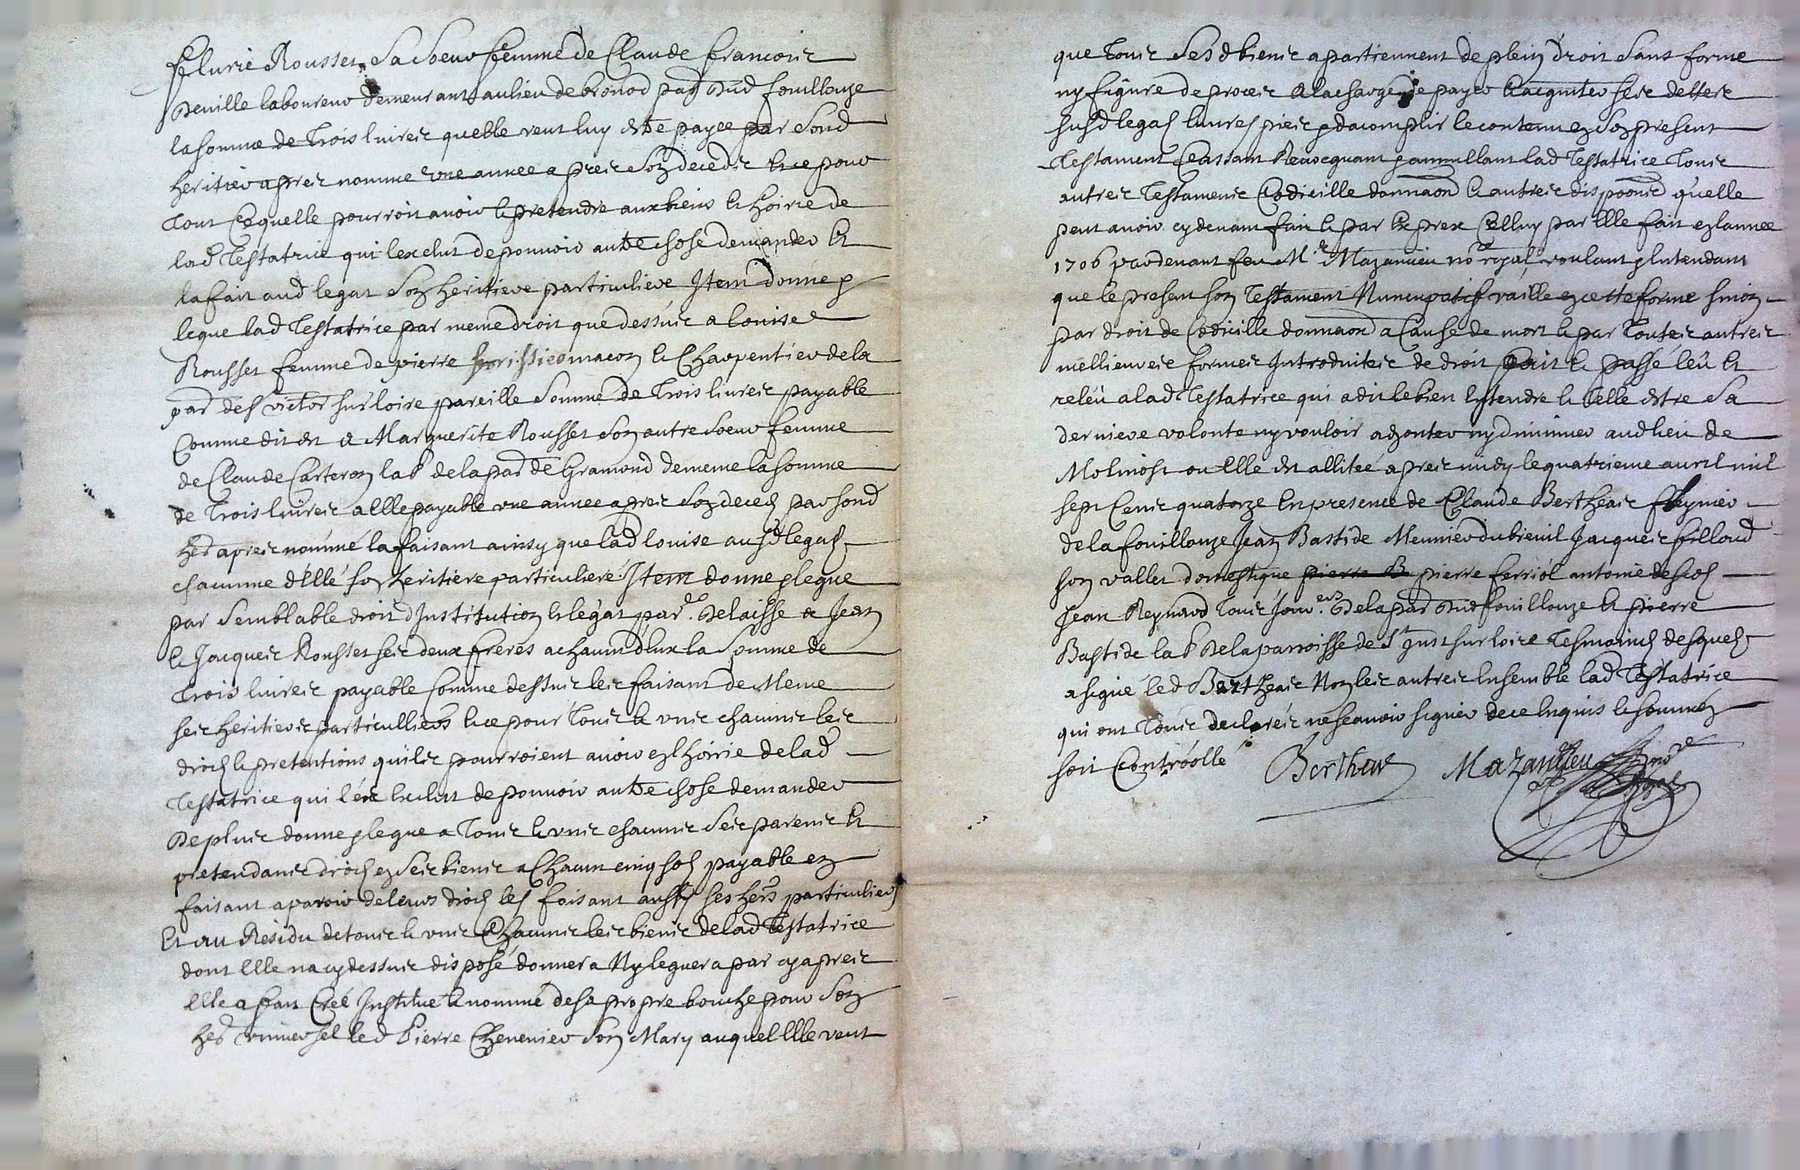 fflurie Rousset Sa Soeur femme de Claude francois
Deville laboureur demeurant au lieu de bronod par dud fouillouze
la somme de Trois livres quelle veut luy estre payee par Sond
heritier apres nomme une annee apres Son deceds et ce pour
tout ce quelle pourroit avoir et pretendre aux biens et hoirie de
lad Testatrice qui lexclut de pouvoir autre chose demander et
la fait aud legat Son heritiere particuliere Item donne et
legue lad Testatrice par meme droit que dessus a louise
Rousset femme de pierre macon et Charpentier de la
par de St victor sur loire pareille Somme de Trois livres payable
Comme dit est a Marguerite Rousset Son autre Soeur femme
de Claude Carteron lab de la par de Gramond de meme la somme
de Trois livres a elle payable une annee apres Son deces par sond
hed apres nomme la faisant ainsy que lad louise ausd legats
chacunne d'elle son heritiere particuliere Item donne et legue
par Semblable droit d'Institution et legat par. Delaisse a Jean
et Jacques Rousset ses deux freres a chacun deux la Somme de
Trois livres payable somme dessus les faisant de Meme
ses heritiers particulliers et ce pour Tous et uns chacuns les
droits et pretentions quils pourroient avoir en lhoirie de lad
Testatrice qui les exclut de pouvoir autre chose demander
De plus donne et legue a Tous et uns chacuns Ses parens et
pretendans droits en Ses biens a Chacun cinq sols payable en
faisant aparoir de leurs droits les faisant aussy ses hers particuliers
Et au Residu de tous et uns Chacuns les biens de lad Testatrice
dont Elle na cy dessus disposé donnera Ny leguera par cy apres
elle a fait Créé Institue et nommé de sa propre bouche pour Son
hed universel led Pierre Chevenier Son Mary auquel Elle veut
que Tous Sesd biens apartiennent de plein droit Sans forme
ny figure de proces a la charge de payer et acquiter ses dettes
susd legats livres pies et dacomplir le contenu en Son present
Testament Cassant Revocquant et annullant lad Testatrice Tous
autres Testamens Codicille donnaon et autres dispoons qu'elle
peut avoir cy devant fait et par Expres Celluy par Elle fait en lannee
1706 pardevant feu Mr Mazancieu nore royal voulant et Intendant
que le present son Testament Nuncupatif vaille en cette forme sinon
par droit de Codicille donnaon a Cause de mort et par Toutes autres
mellieures formes Introduites de droit fait et passé leû et
releû a lad Testatrice qui a dit le bien Entendre et Telle estre Sa
derniere volonte ny vouloir adjouter ny diminuer aud lieu de
Molinost ou Elle est allitée apres midy le quatrieme avril mil
sept Cens quatorze En presence de Claude Bertheas
de la fouillouze Jean Bastide Meunier du breuil Jacques filloud
son vallet domestique pierre B pierre ferriol antoine descos
Jean Reynaud Tous Jourers De la par dud fouillouze et pierre
Bastide lab De la parroisse de St Just sur loire Tesmoins desquels
a signé led Bertheas Non les autres Ensemble lad Testatrice
qui ont Tous declarés ne scavoir signer de ce Enquis et sommés
soit Controolle Bertheas Mazancieu nore